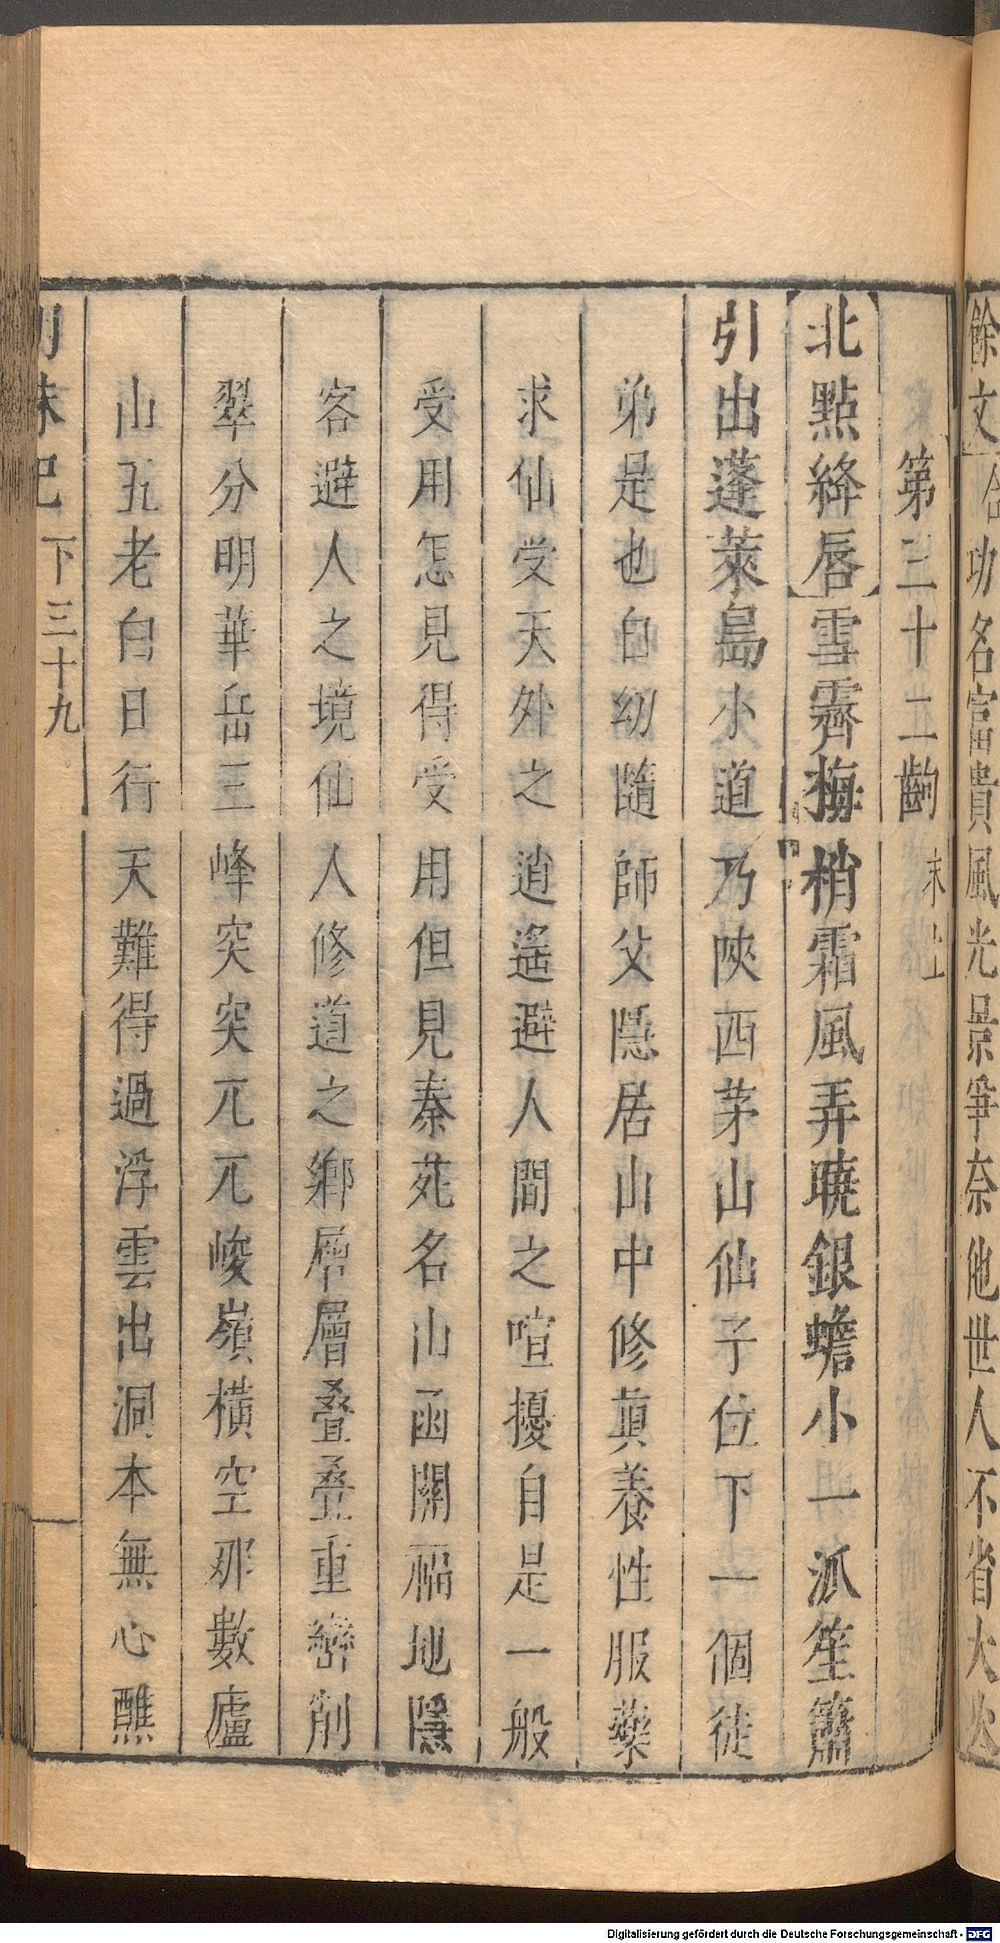 餘文
功名富貴風光景爭奈他世人不省大
第三十二齣 末上
北點絳唇 雪霽梅梢霜風弄曉銀蟾小一派笙簫
引出蓬萊島小道乃陝西茅山仙子位下一個徒
弟是也自幼隨師父隱居山中修眞養性服藥
求仙受天外之逍遙避人間之喧擾自是一般
受用怎見得受用但見秦苑名山函關福地隱
客避人之境仙人修道之鄉層層疊疊重巒削
翠分明華岳三峰突突兀兀峻嶺橫空那數廬
山五老白日行天難得過浮雲出洞本無心醮
下 三十九
Digitalisierung gefördert durch die Deutsche Forschungsgemeinschaft - DFG